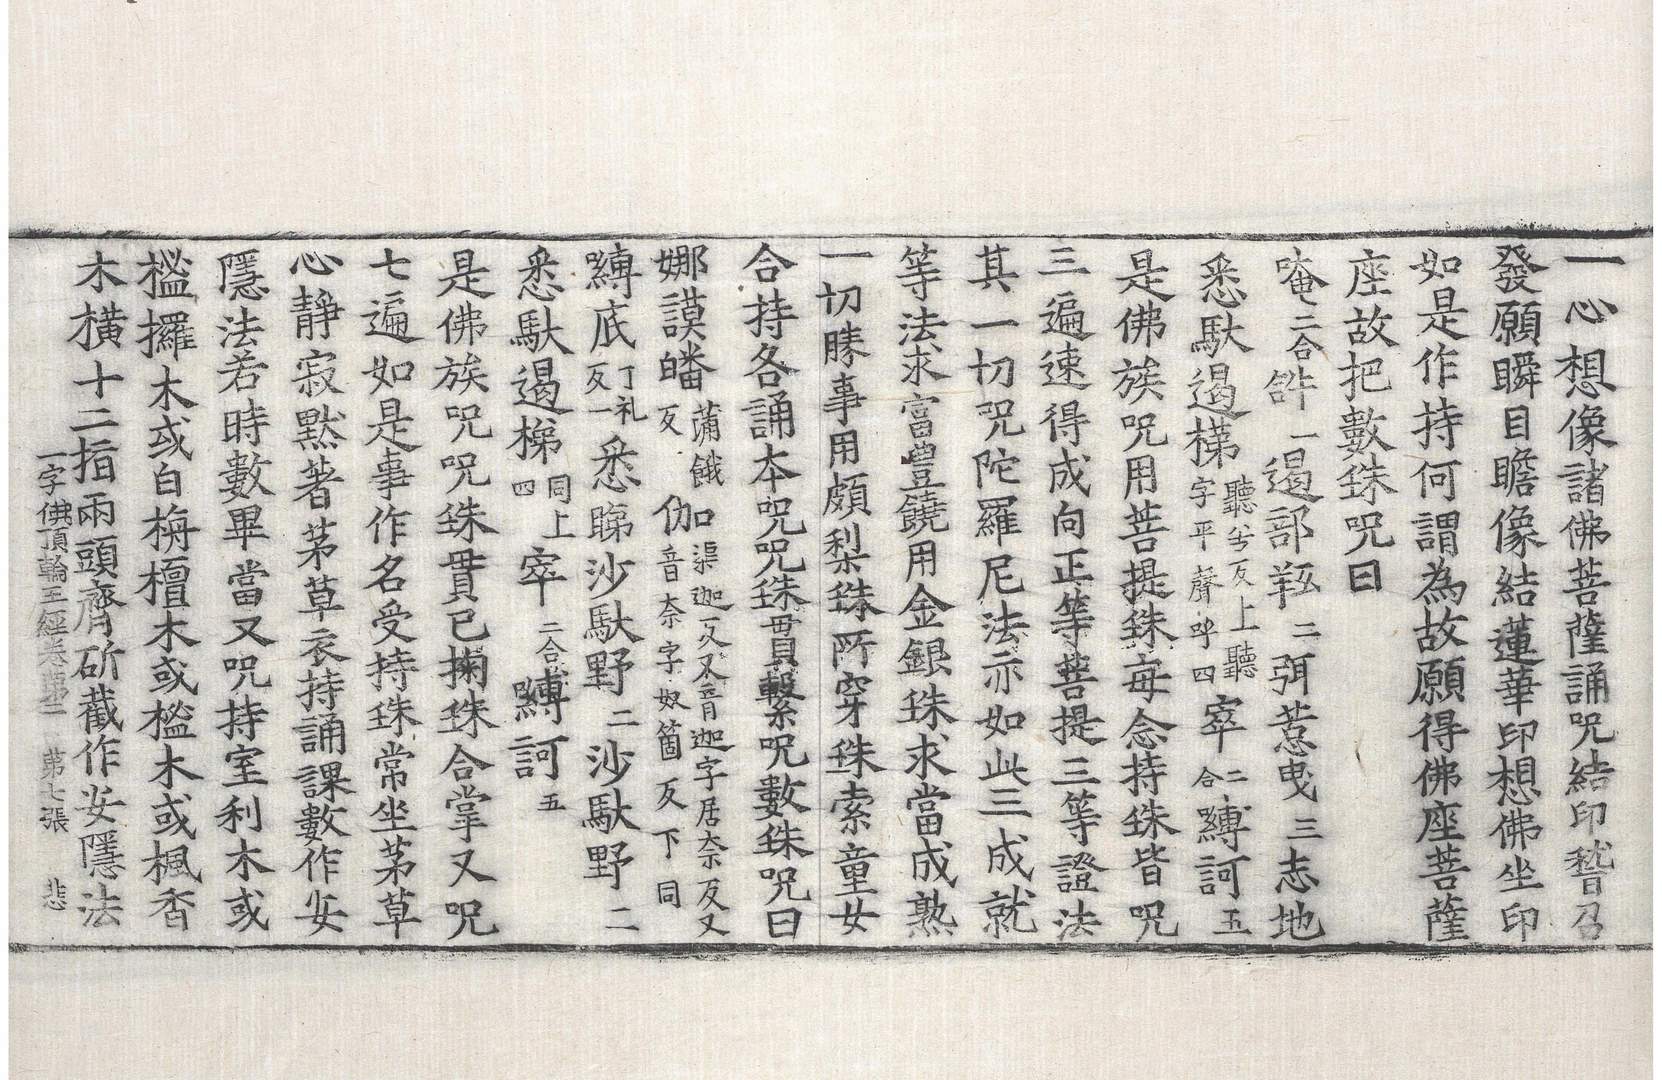 一心想像諸佛菩薩誦咒結印瞥召
發願瞬目瞻像結蓮華印想佛坐印
如是作持何謂為故願得佛座菩薩
座故把數珠咒曰
唵二合𤙖一遏部羝二弭惹曳三志地
悉馱遏梯聽兮反上聽字平聲呼四寧二合縛訶五
是佛族咒用菩提珠每念持珠皆咒
三遍速得成向正等菩提三等證法
其一切咒陀羅尼法亦如此三成就
等法求富豐饒用金銀珠求當成熟
一切勝事用頗梨珠所穿珠索童女
合持各誦本咒咒珠貫繫咒數珠咒曰
娜謨皤蒲餓反伽渠迦反又音迦字居奈反又音奈字奴箇反下同
縛底丁礼反一悉睇沙馱野二沙馱野二
悉馱遏梯同上四窣二合縛訶五
是佛族咒咒珠貫已掬珠合掌又咒
七遍如是事作名受持珠常坐茅草
心靜寂默著茅草衣持誦課數作安
隱法若時數畢當又咒持室利木或
㯿攞木或白栴檀木或㯿木或楓香
木橫十二指兩頭齊斫截作安隱法
一字佛頂輪王經卷第二 第七張 悲